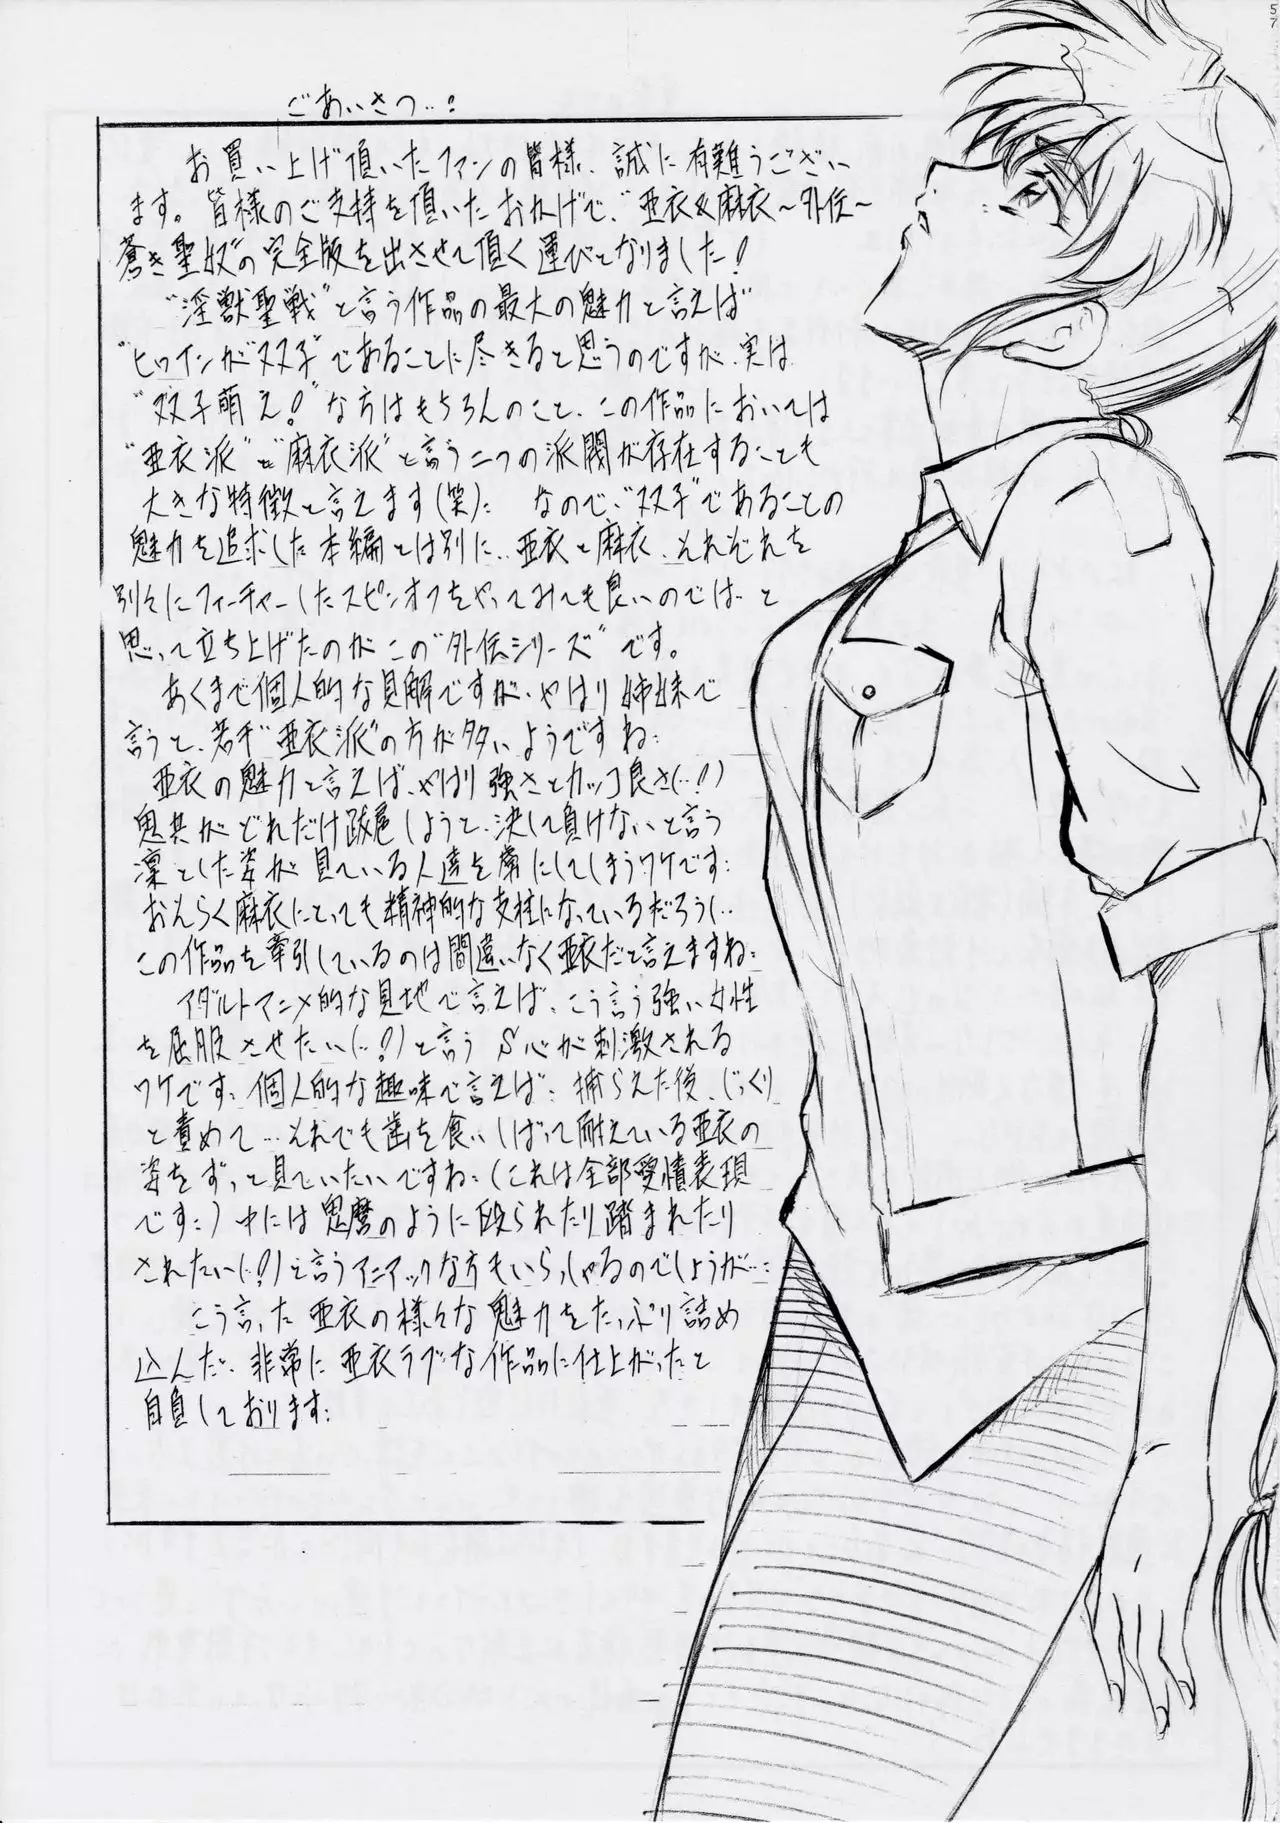 57
ごあいさつ…!
お買い上げ頂いたファンの皆様、誠に有難うござい
ます。皆様のご支持を頂いたおかげで、“亜衣&麻衣〜外伝〜
蒼き聖奴”の完全版を出させて頂く運びとなりました!
“淫獣聖戦”と言う作品の最大の魅力と言えば
“ヒロインが“双子”であることに尽きると思うのですが、実は
“双子萌え!”な方はもちろんのこと、この作品においては
“亜衣派”と“麻衣派”と言う二つの派閥が存在することも
大きな特徴と言えます(笑)… なので、“双子”であることの
魅力を追求した本編とは別に…亜衣と麻衣、それぞれを
別々にフィーチャーしたスピンオフをやってみても良いのでは…と
思って立ち上げたのがこの“外伝シリーズ”です。
あくまで個人的な見解ですが、やはり姉妹で
言うと、若干“亜衣派”の方が多いようですね…
亜衣の魅力と言えば、やはり強さとカッコ良さ(…!)
鬼共がどれだけ跋扈しようと、決して負けないと言う
凜とした姿が見ている人達を虜にしてしまうワケです…
おそらく麻衣にとっても精神的な支柱になっているだろうし…
この作品を牽引しているのは間違いなく亜衣だと言えますね…
アダルトアニメ的な見地で言えば、こう言う強い女性
を屈服させたい(…!?)と言うS心が刺激される
ワケです…個人的な趣味で言えば…捕らえた後、じっくり
と責めて…それでも歯を食いしばって耐えている亜衣の
姿をずっと見ていたいですね…(これは全部愛情表現
です…)中には鬼麿のように殴られたり踏まれたり
されたい(…!?)と言うマニアックな方もいらっしゃるのでしょうが…
こう言った亜衣の様々な魅力をたっぷり詰め
込んだ、非常に亜衣ラブな作品に仕上がったと
自負しております…